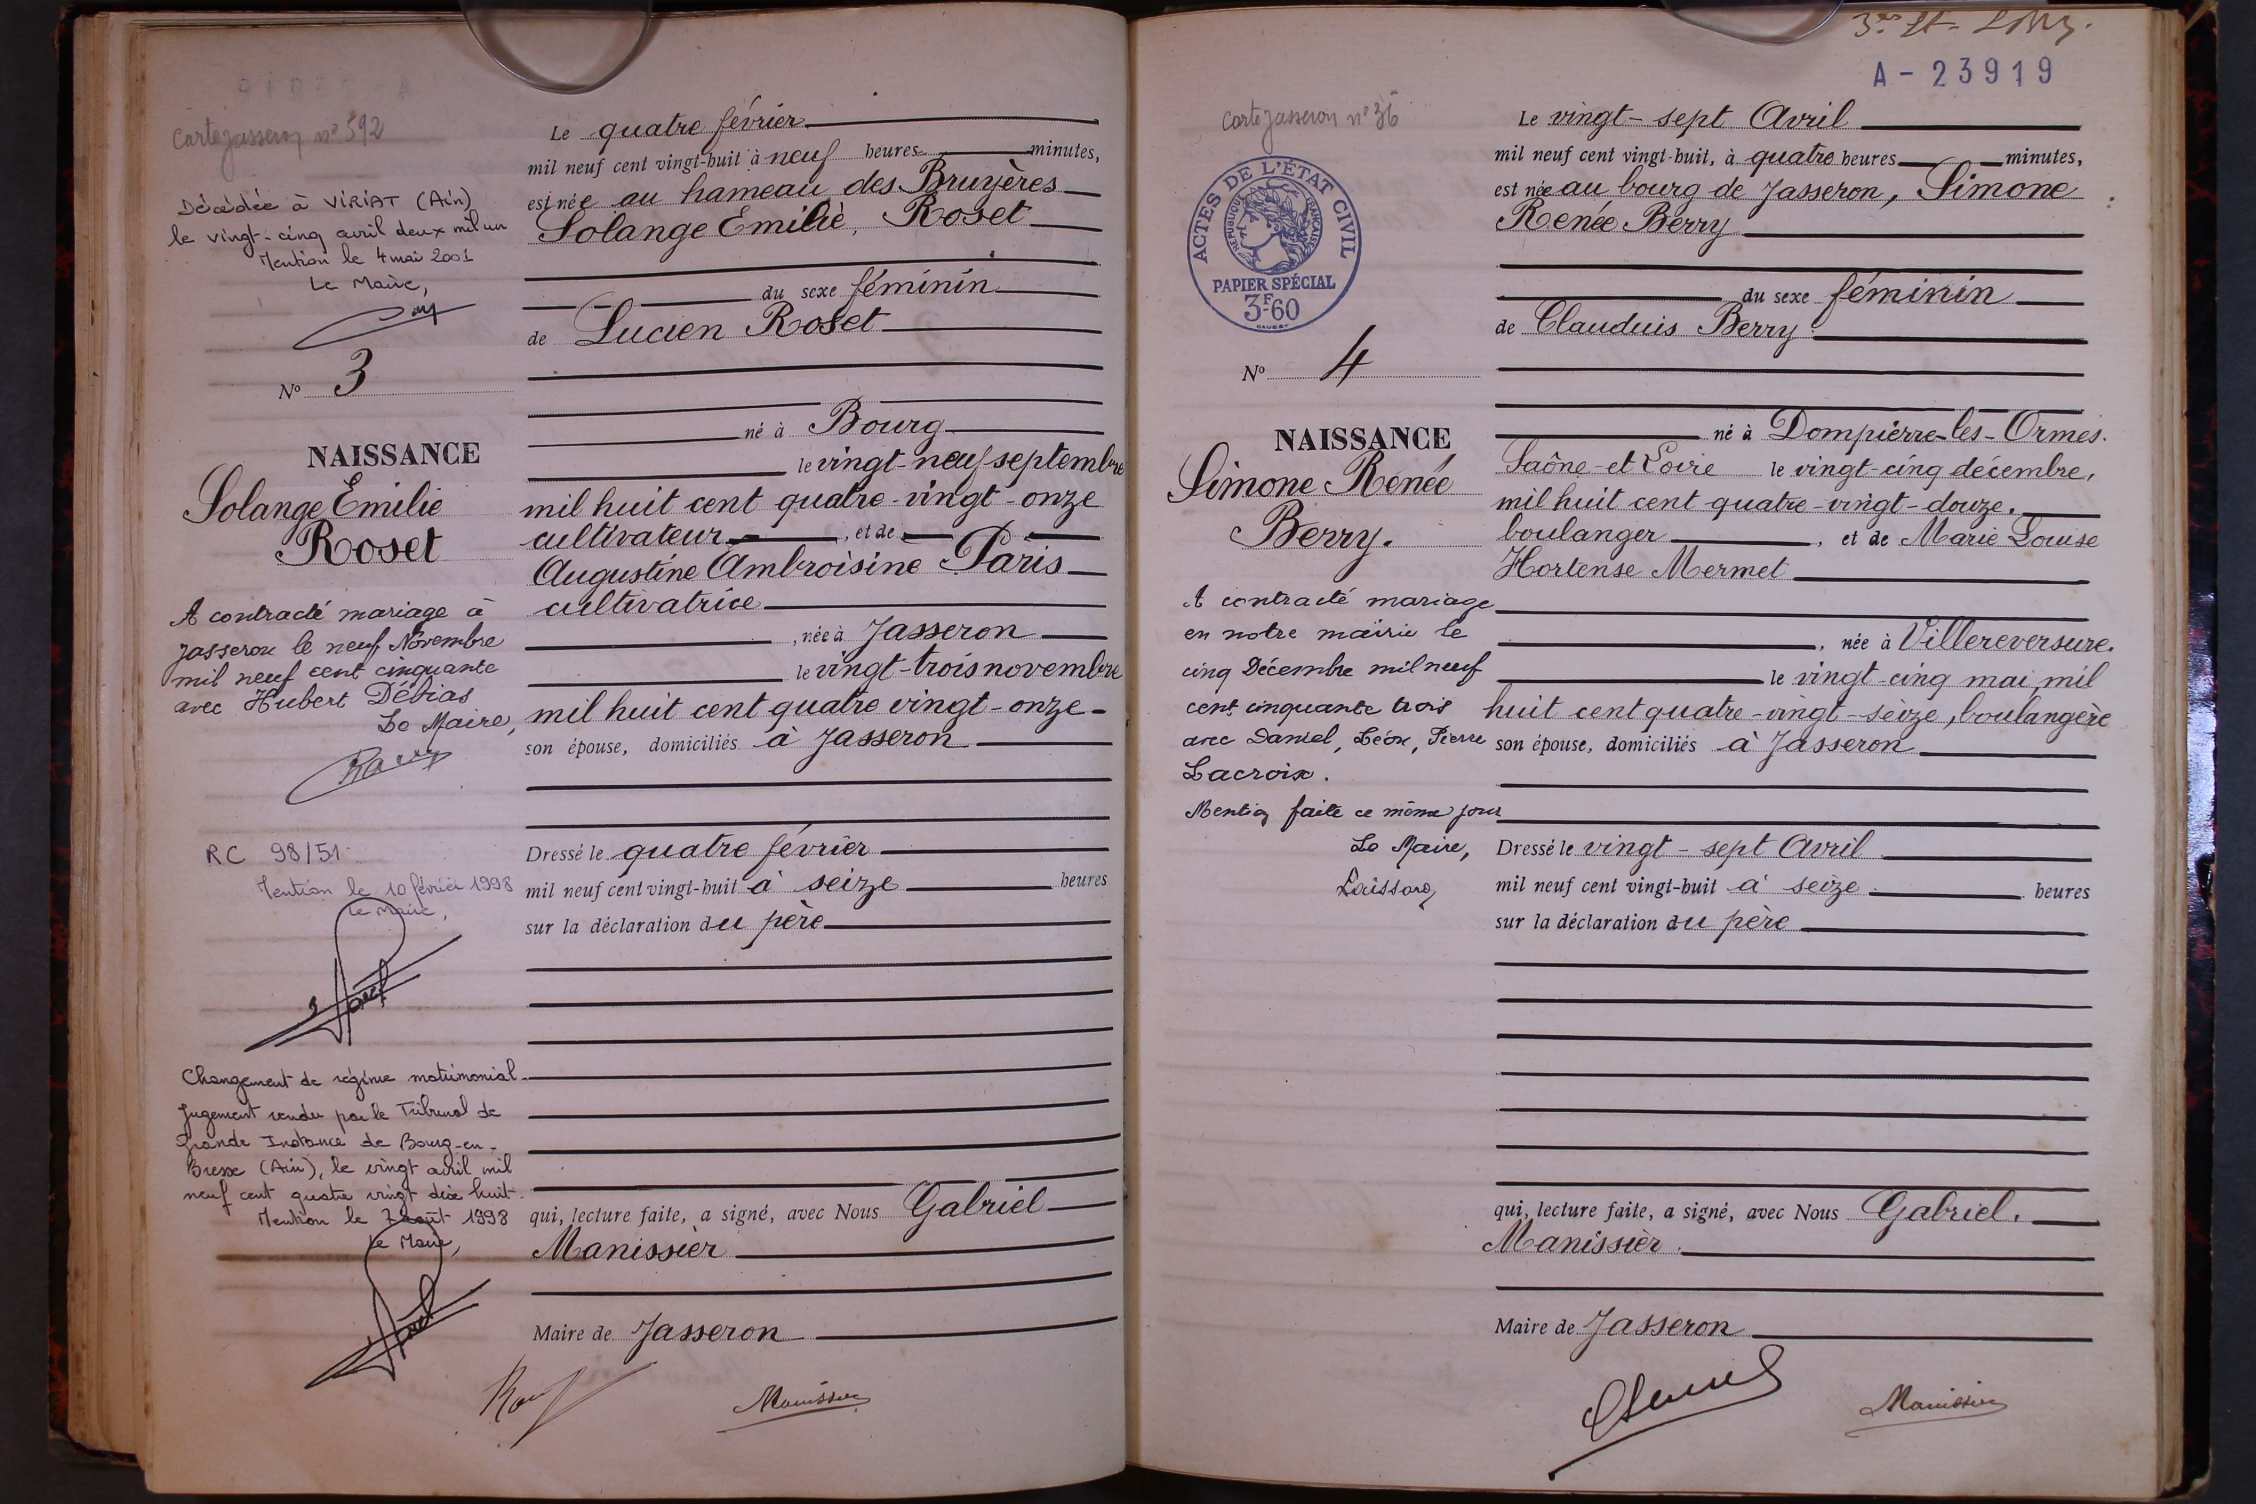 Carte Jasseron n° 592
Décédée à VIRIAT (Ain)
le vingt-cinq avril deux mil un
Mention le 4 mai 2001
Le Maire,
N° 3
NAISSANCE
Solange Emilie
Roset
A contracté mariage à
Jasseron le neuf Novembre
mil neuf cent cinquante
avec Hubert Débias
Le Maire,
RC 98/51
Mention le 10 février 1998
Le Maire,
Changement de régime matrimonial.
Jugement rendu par le Tribunal de
Grande Instance de Bourg-en-
Bresse (Ain), le vingt avril mil
neuf cent quatre vingt dix huit.
Mention le 7 août 1998
Le Maire,
Le quatre février
mil neuf cent vingt-huit à neuf heures minutes,
est née au hameau des Bruyères
Solange Emilie, Roset
du sexe féminin
de Lucien Roset
né à Bourg
le vingt-neuf septembre
mil huit cent quatre-vingt-onze
cultivateur, et de
Augustine Ambroisine Paris
cultivatrice
, née à Jasseron
le vingt-trois novembre
mil huit cent quatre vingt-onze-
son épouse, domiciliés à Jasseron
Dressé le quatre février
mil neuf cent vingt-huit à seize heures
sur la déclaration du père
qui, lecture faite, a signé, avec Nous Gabriel
Manissier
Maire de Jasseron
Manissier
A-23919
Carte Jasseron n° 36
ACTES DE L'ÉTAT CIVIL
RÉPUBLIQUE FRANÇAISE
PAPIER SPÉCIAL
3F-60
N° 4
NAISSANCE
Simone Renée
Berry.
A contracté mariage
en notre mairie le
cinq Décembre mil neuf
cent cinquante trois
avec Daniel, Léon, Pierre
Lacroix.
Mention faite ce même jour
Le Maire,
Le vingt-sept Avril
mil neuf cent vingt-huit, à quatre heures minutes,
est née au bourg de Jasseron, Simone
Renée Berry
du sexe féminin
de Claudius Berry
né à Dompierre-les-Ormes.
Saône-et-Loire le vingt-cinq décembre,
mil huit cent quatre-vingt-douze.
boulanger, et de Marie Louise
Hortense Mermet
, née à Villereversure.
le vingt-cinq mai mil
huit cent quatre-vingt-seize, boulangère
son épouse, domiciliés à Jasseron
Dressé le vingt-sept Avril
mil neuf cent vingt-huit à seize heures
sur la déclaration du père
qui, lecture faite, a signé, avec Nous Gabriel.
Manissier.
Maire de Jasseron
Manissier